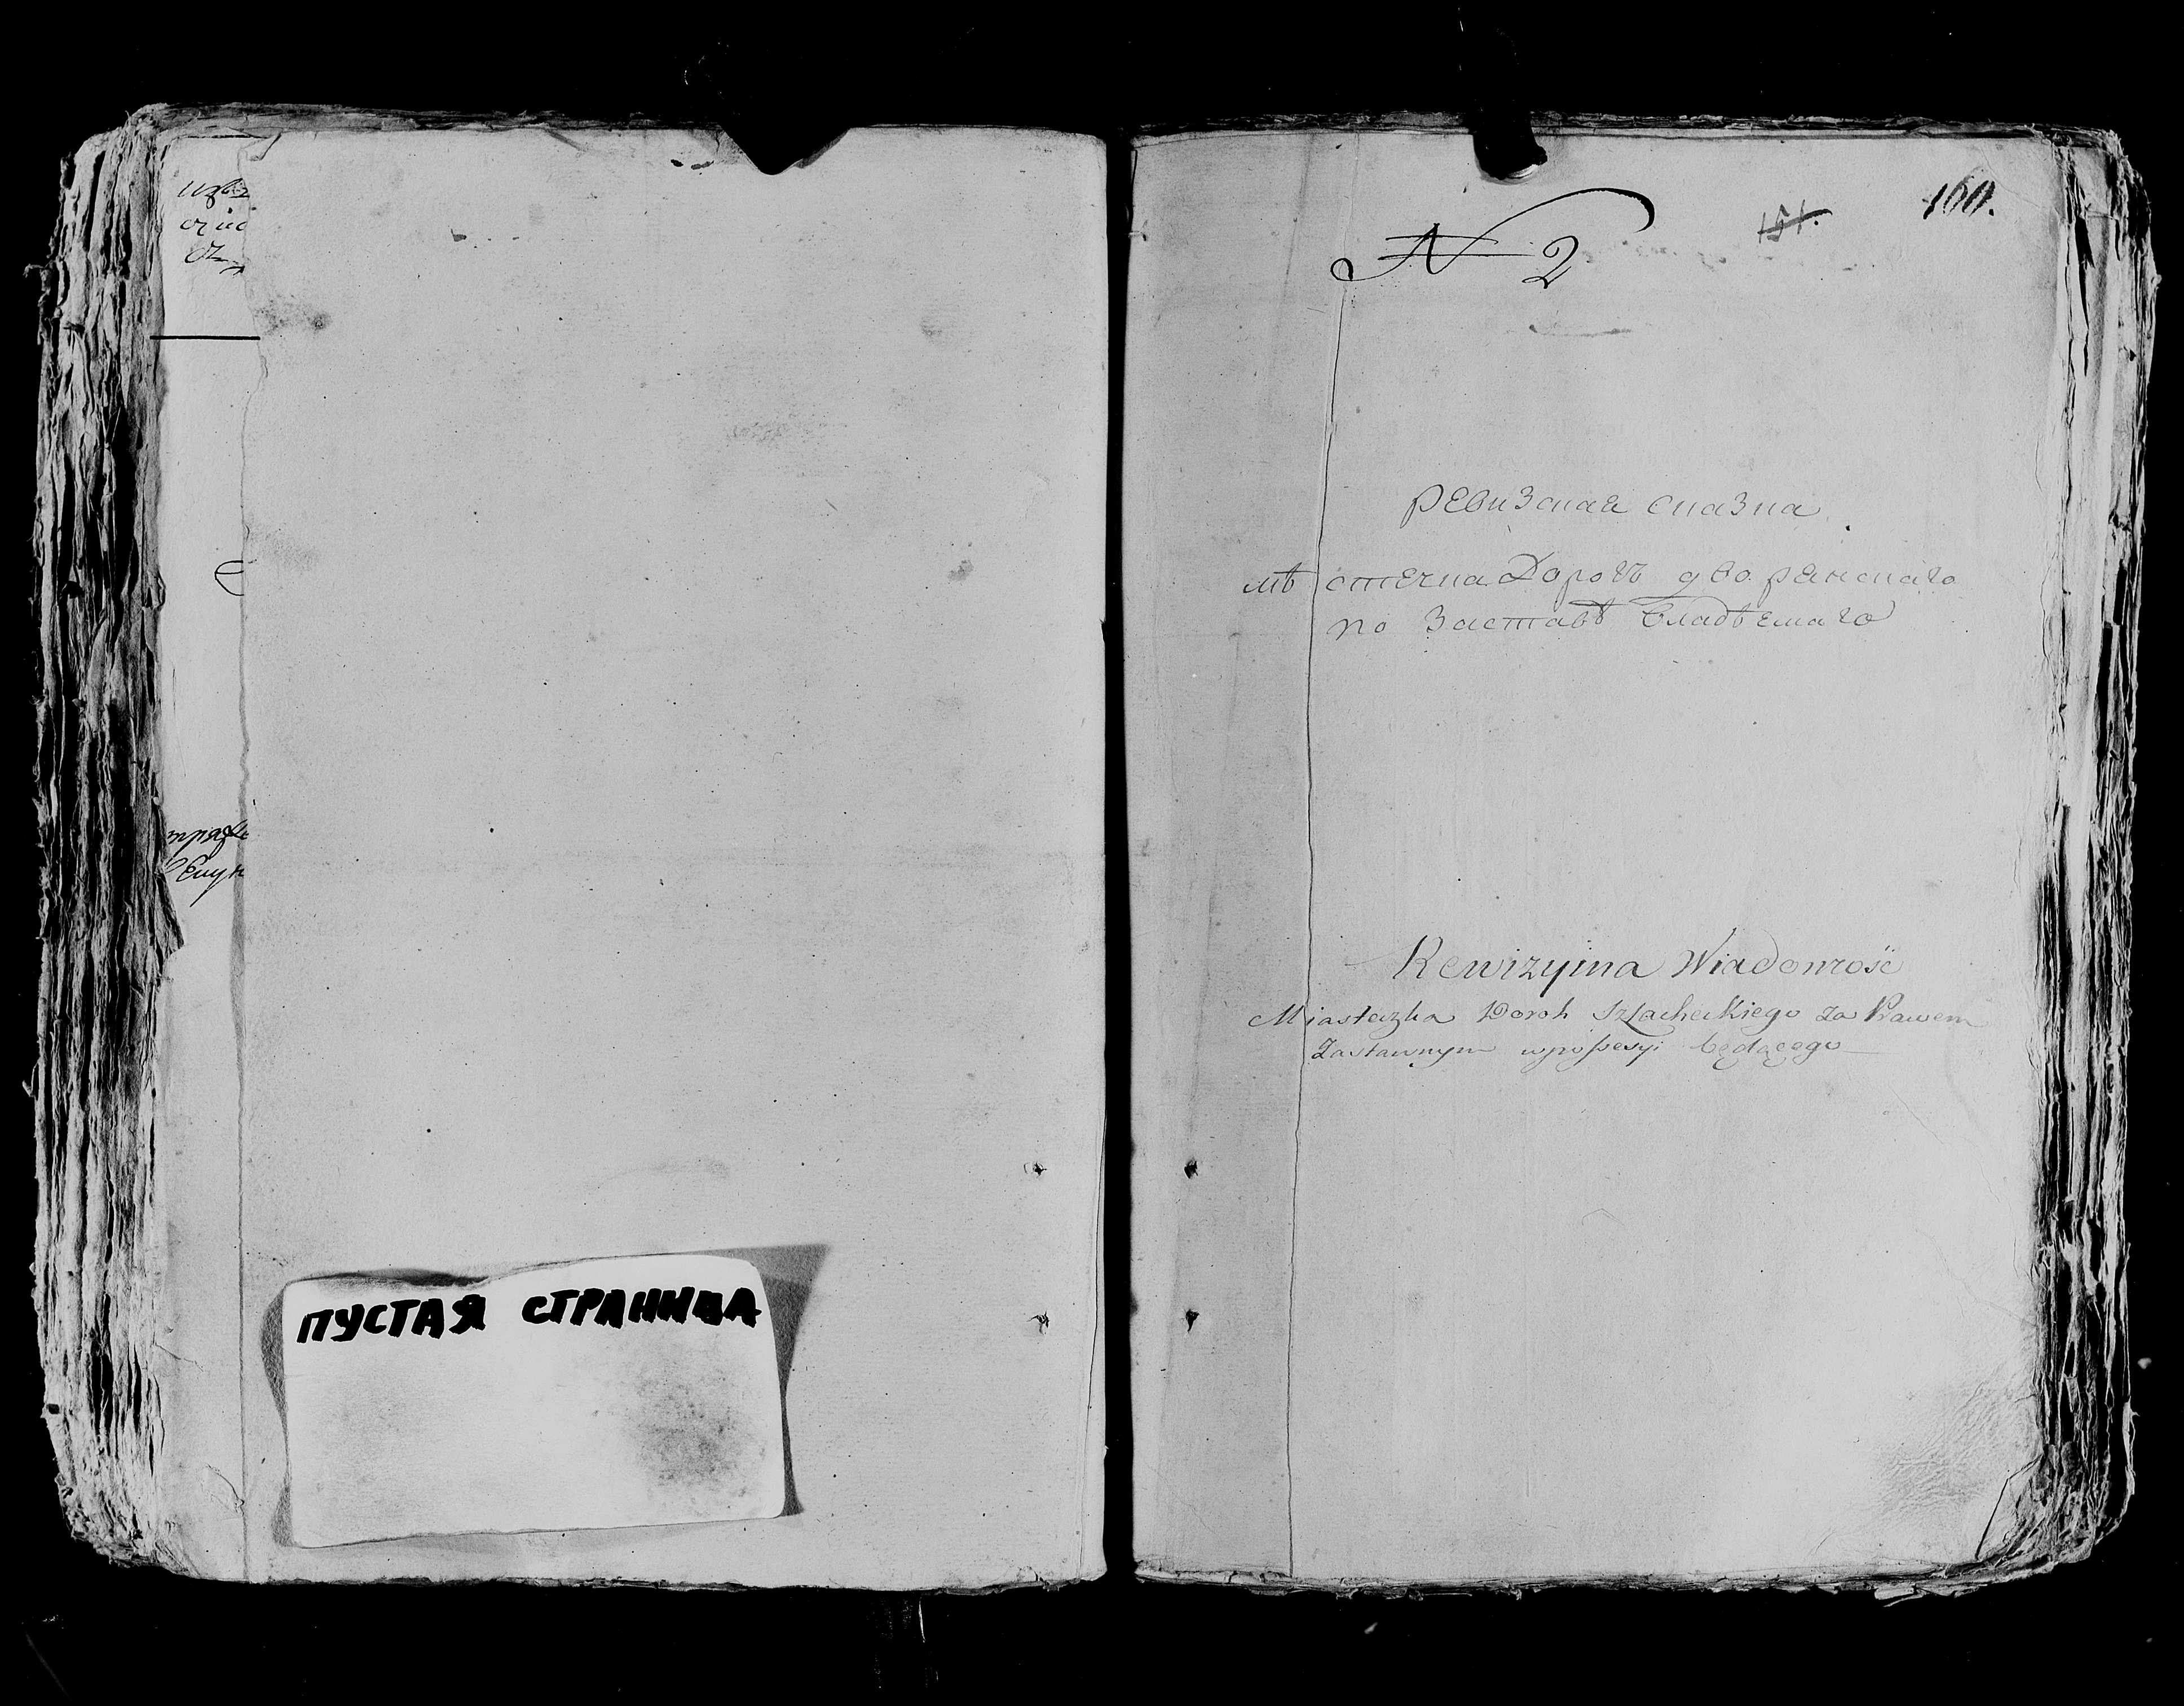 ПУСТАЯ СТРАНИЦА
N 2
151.
160.
Ревизская сказка
мѣстечка Дорогъ дворянскаго
по заставѣ владѣемаго
Rewizyina Wiadomość
Miasteczka Doroh Szlacheckiego za Prawem
Zastawnym w possesyi będącego